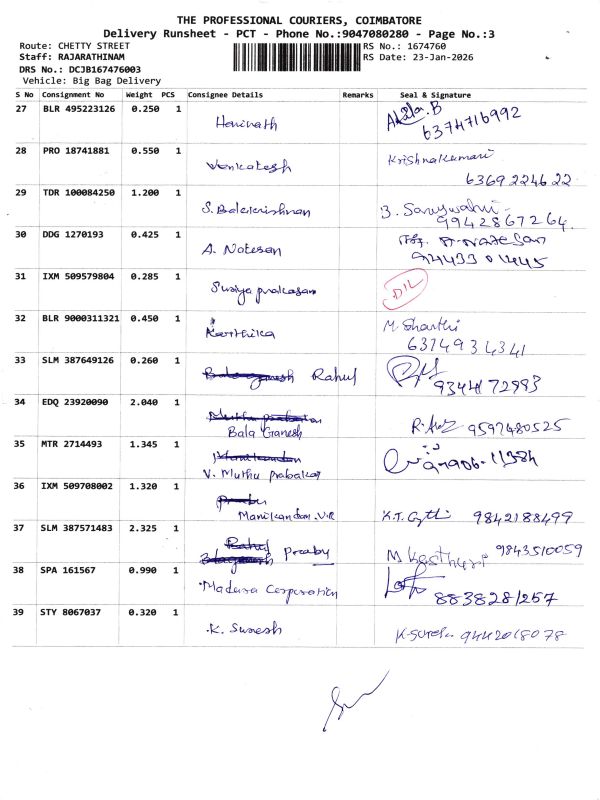 THE PROFESSIONAL COURIERS, COIMBATORE
Delivery Runsheet - PCT - Phone No.:9047080280 - Page No.:3
Route: CHETTY STREET RS No.: 1674760
Staff: RAJARATHINAM RS Date: 23-Jan-2026
DRS No.: DCJB167476003
Vehicle: Big Bag Delivery
S No Consignment No Weight PCS Consignee Details Remarks Seal & Signature
27 BLR 495223126 0.250 1 Harinath Akila.B
6374716992
28 PRO 18741881 0.550 1 Venkatesh Krishnakumari
6369224622
29 TDR 100084250 1.200 1 S. Balakrishnan
9942867264
30 DDG 1270193 0.425 1 A. Notesan A. NATESAN
94433 01445
31 IXM 509579804 0.285 1 Suriya prakasan D/L
32 BLR 9000311321 0.450 1 Karthika M. Sharthi
6374934341
33 SLM 387649126 0.260 1 Rahul
9344172993
34 EDQ 23920090 2.040 1
Bala Ganesh 9597480525
35 MTR 2714493 1.345 1 Manikandan
V. Muthu prabakar
36 IXM 509708002 1.320 1 Prabu
Manikandan. V.R K.T. 9842188499
37 SLM 387571483 2.325 1 Rahul
Balaganesh Prabu M Kasthuri 9843510059
38 SPA 161567 0.990 1 Madura Corporation
8838281257
39 STY 8067037 0.320 1 K. Suresh K. Suresh 9442018078